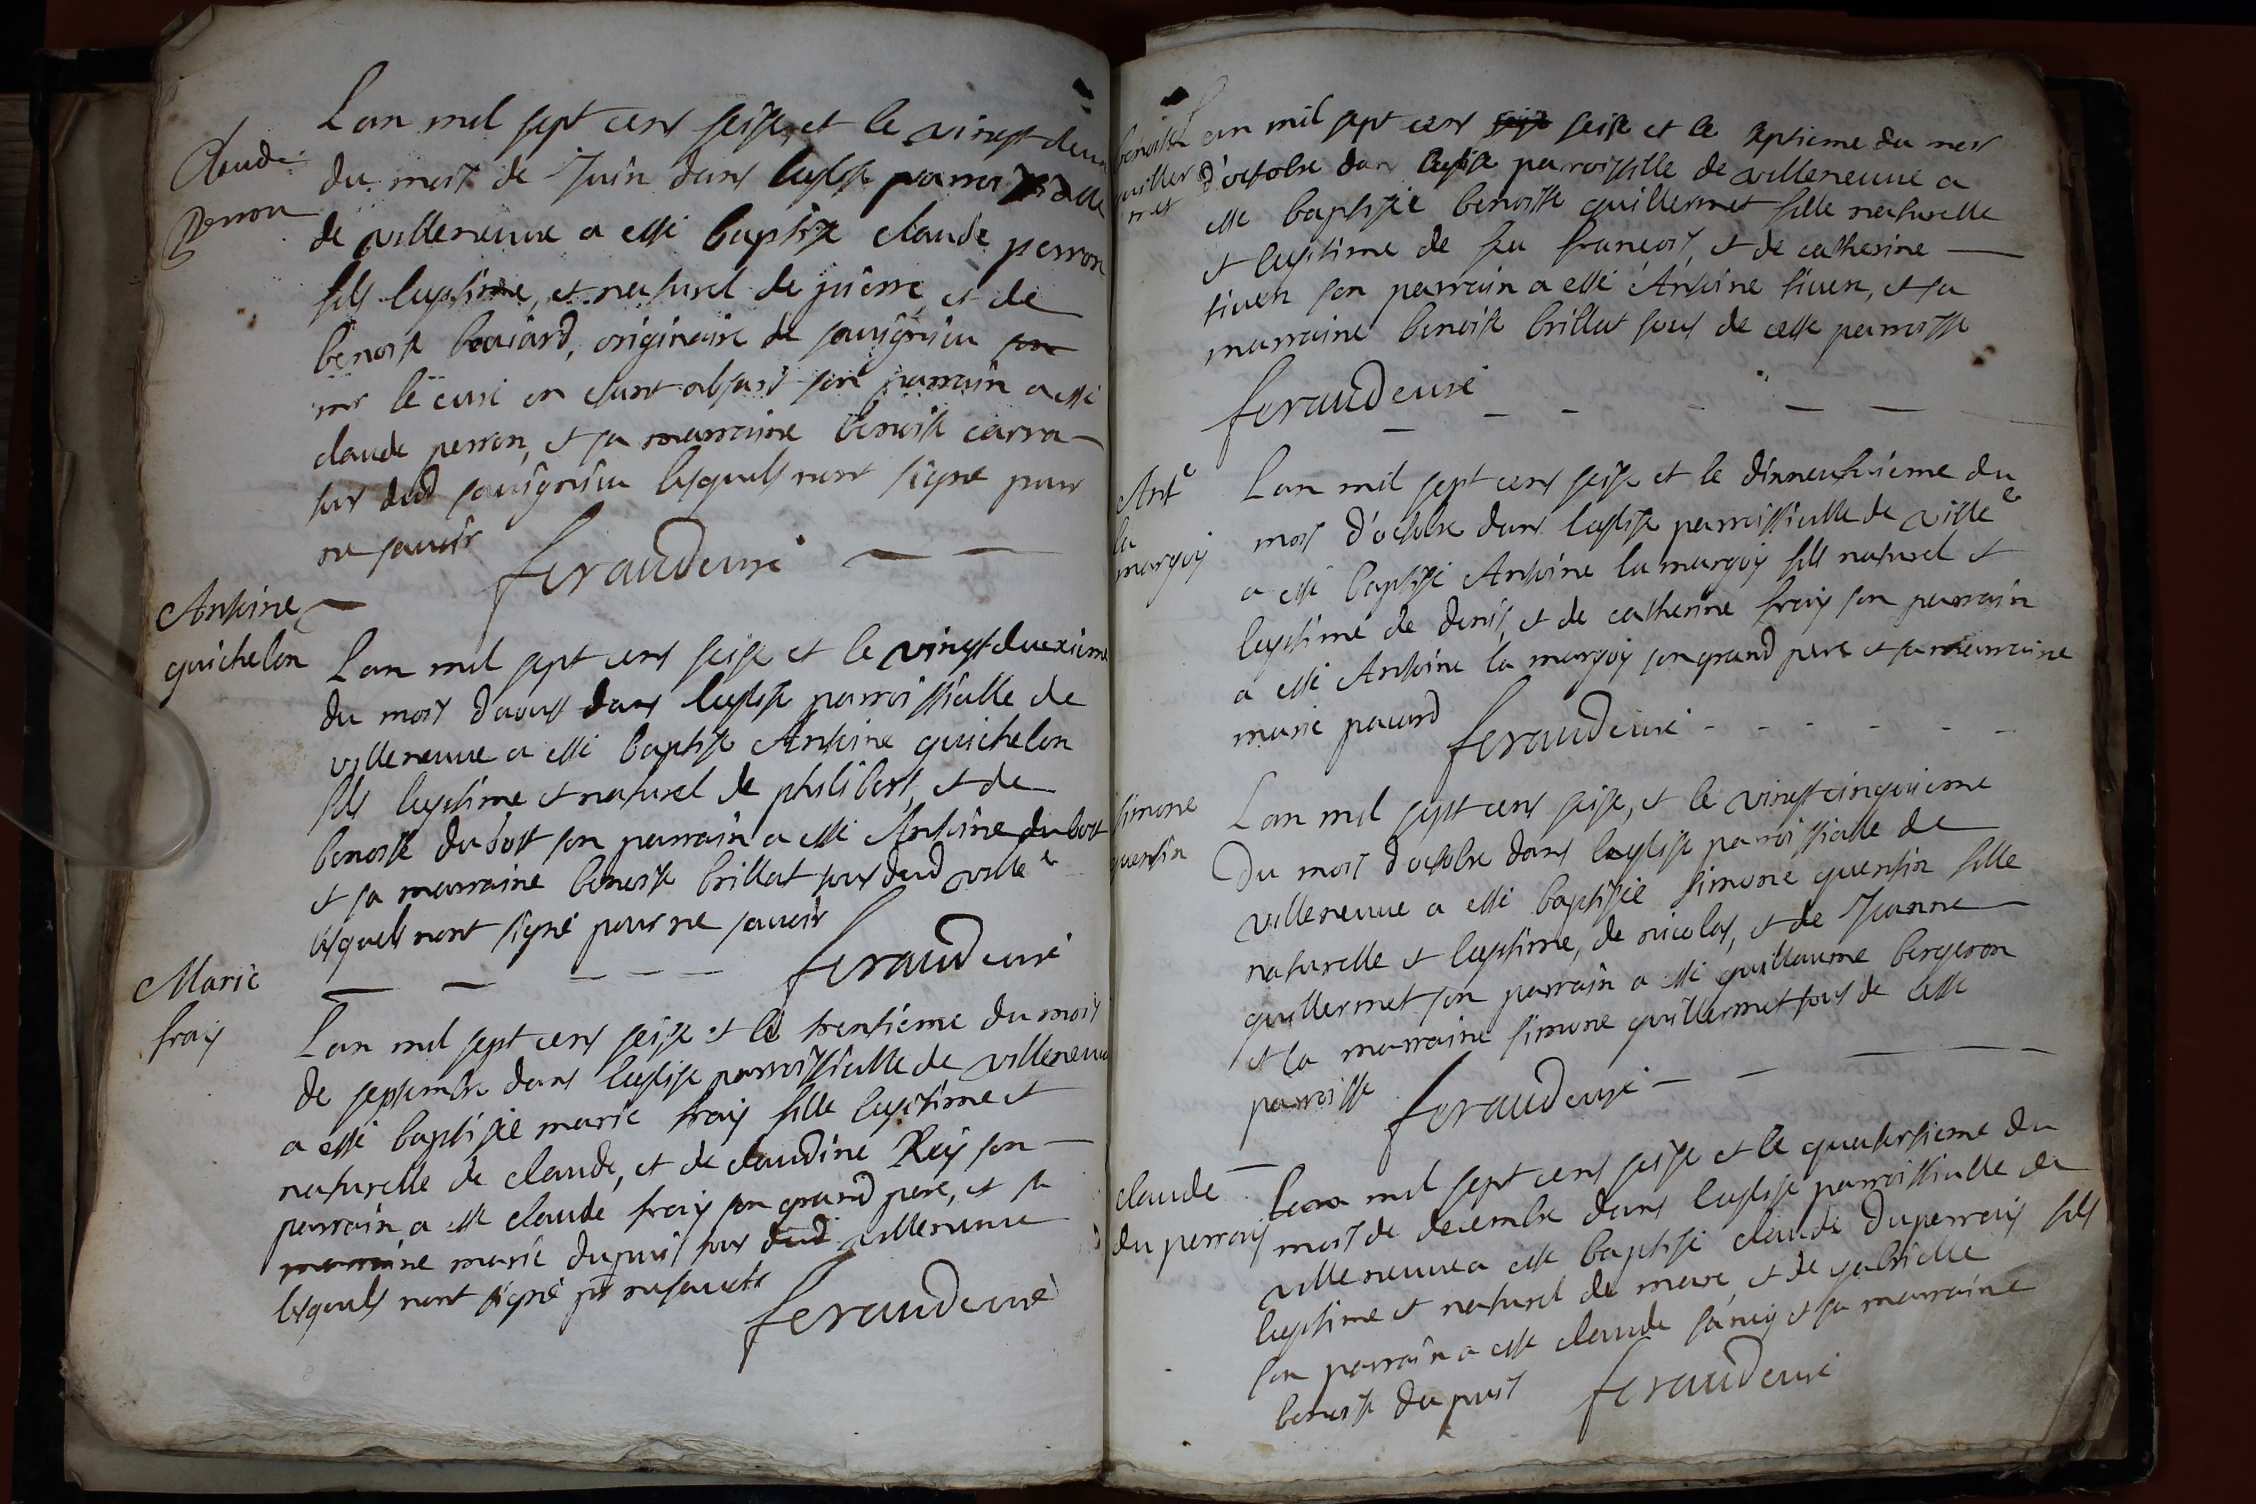 Claude
perron
Lan mil sept cens seise, et le vingt deux
du mois de Juin dans leglise parroissialle
de villeneuve a esté baptisé claude perron
fils legitime, et naturel de pierre et de
benoiste originaire de savigneu
mr le curé en etant absant son parrain a esté
claude perron, et sa marraine benoiste carra
tous dud savigneu lesquels nont signé pour
ne savoir feraud curé
Antoine
guichelon
Lan mil sept cens seise et le vingt deuxieme
du mois daoust dans leglise parroissialle de
villeneuve a esté baptisé Antoine guichelon
fils legitime et naturel de philibert, et de
benoiste dubost son parrain a esté Antoine dubost
et sa marraine benoiste brillat tous dud ville^e
lesquels nont signé pour ne savoir
feraud curé
Marie
frais
Lan mil sept cens seise et le trentieme du mois
de septembre dans leglise parroissialle de villeneuve
a esté baptisée marie frais fille legitime et
naturelle de claude, et de claudine Rey son
parrain a esté claude frais son grand pere, et sa
marraine marie dupuis tous dud villeneuve
lesquels nont signé pr ne savoir
feraud curé
benoiste
guiller
met
Lan mil sept cens seise seise et le septieme du mois
d'octobre dans leglise parroissille de villeneuve a
esté baptisée benoiste guillermet fille naturelle
et legitime de feu francois, et de catherine
siven son parrain a esté Antoine siven, et sa
marraine benoiste brillat tous de cette parroisse
feraud curé
Ant^e
la
margoy
Lan mil sept cens seise et le dixneufvieme du
mois d'octobre dans leglise parroissialle de ville^e
a esté baptisé Antoine la margoy fils naturel et
legitime de denis, et de catherine frais son parrain
a esté Antoine la margoy son grand pere et sa marraine
marie pacard feraud curé
simone
quentin
Lan mil sept cens seise, et le vingt cinquieme
du mois doctobre dans leglise parroissialle de
villeneuve a esté baptisée simone quentin fille
naturelle et legitime, de nicolas, et de Jeanne
guillermet son parrain a esté guillaume bergeron
et sa marraine simone guillermet tous de cette
parroisse feraud curé
claude
du perrais
Lan mil sept cens seise et le quatorsieme du
mois de decembre dans leglise parroissialle de
villeneuve a esté baptisé claude duperrais fils
legitime et naturel de marc, et de gabrielle
son parrain a esté claude et sa marraine
benoiste dupuis feraud curé